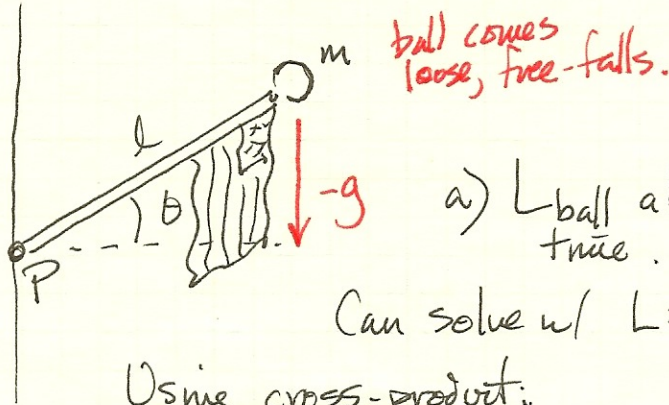 ball comes
loose, free-falls.
m
l
θ
-g
P
a) L ball a
time.
Can solve w/ L
Using cross-product: